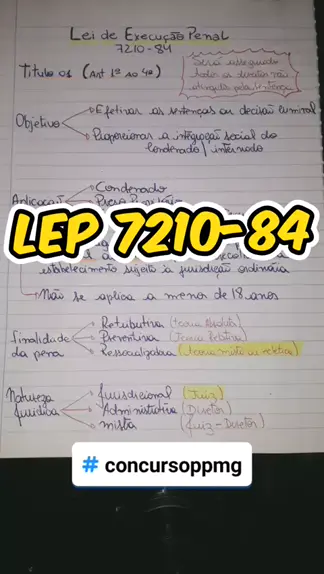 Lei de Execução Penal
7210-84
Título 01 (Art 1º ao 4º)
Será assegurado
todos os direitos não
atingidos pela sentença
Objetivo
Efetivar as sentenças ou decisão criminal
Proporcionar a integração social do
condenado/internado
Aplicação
Condenado
LEP 7210-84
estabelecimento sujeito à jurisdição ordinária
Não se aplica a menor de 18 anos
Finalidade
da pena
Retributiva (teoria absoluta)
Preventiva (Teoria Relativa)
Ressocializadora (teoria mista ou eclética)
Natureza
Jurídica
Jurisdicional (Juiz)
Administrativa (Diretor)
mista (Juiz-Diretor)
# concursoppmg